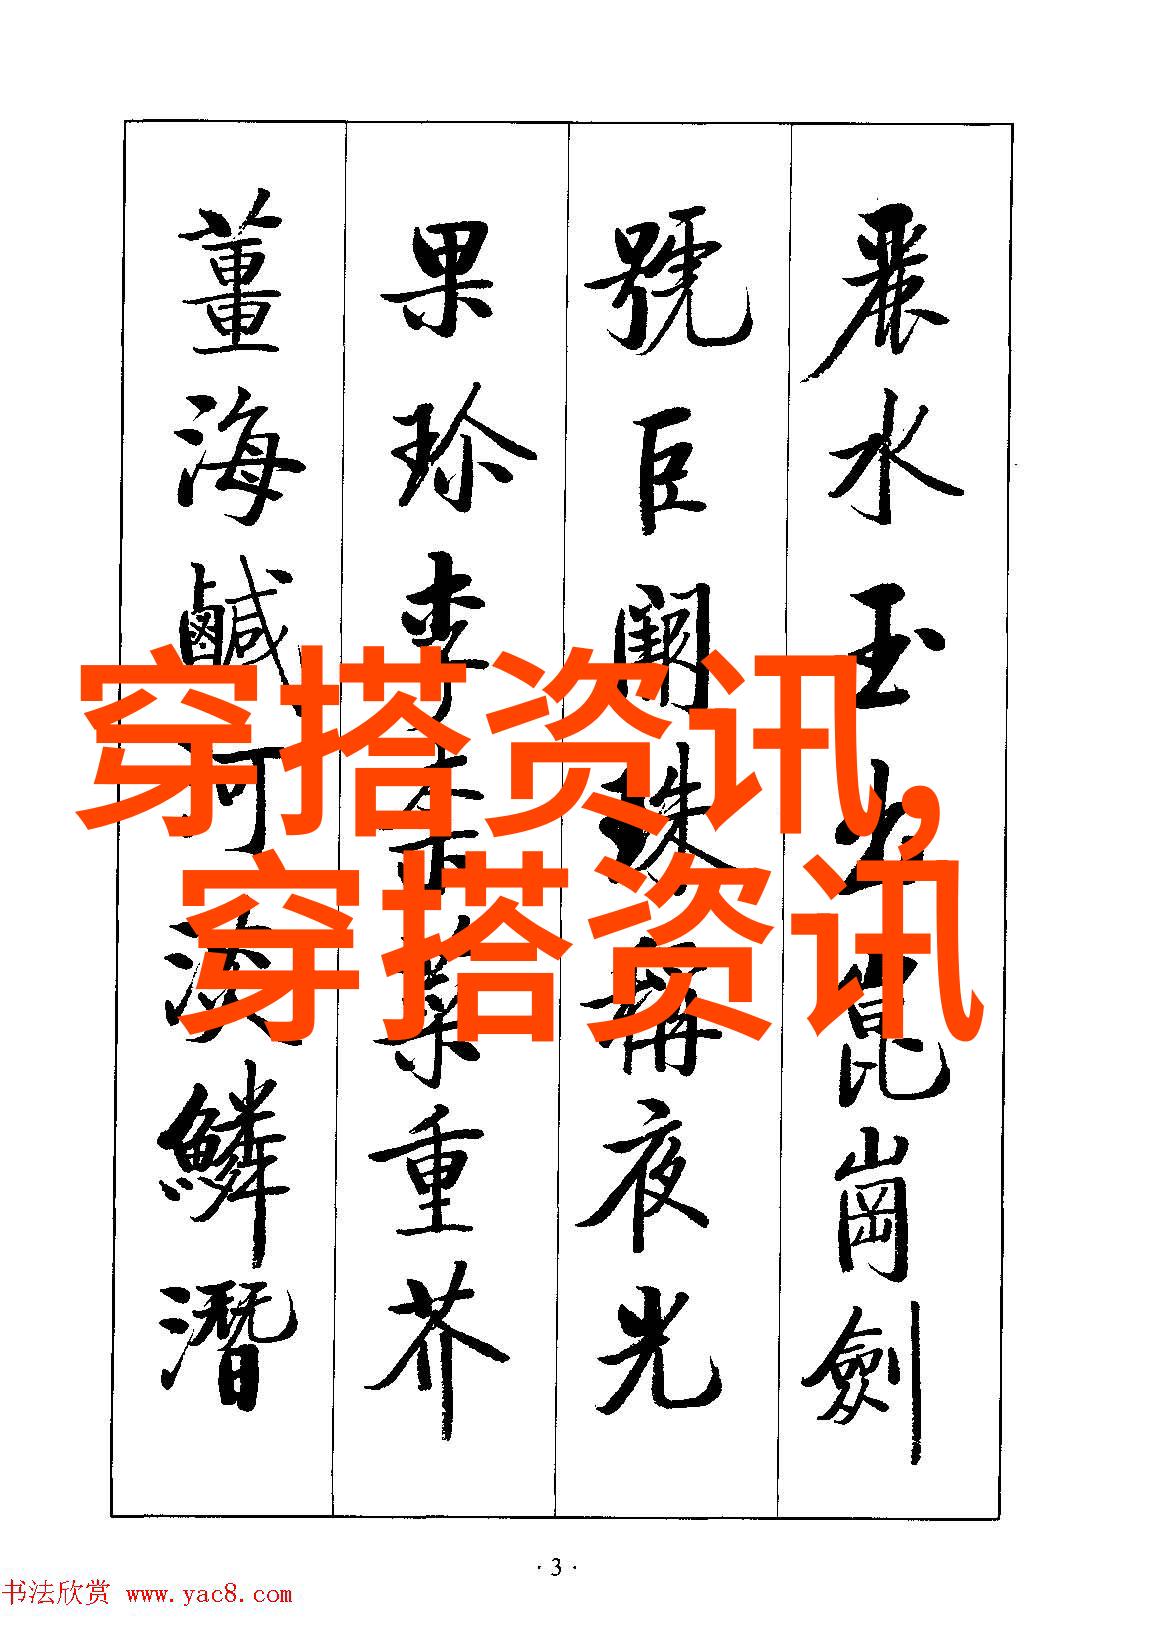 麗水玉出崑崗劍
號巨闕珠稱夜光
果珍李柰菜重芥
薑海鹹河淡鱗潛
穿搭资讯,
穿搭资讯
·3·
书法欣赏 www.yac8.com